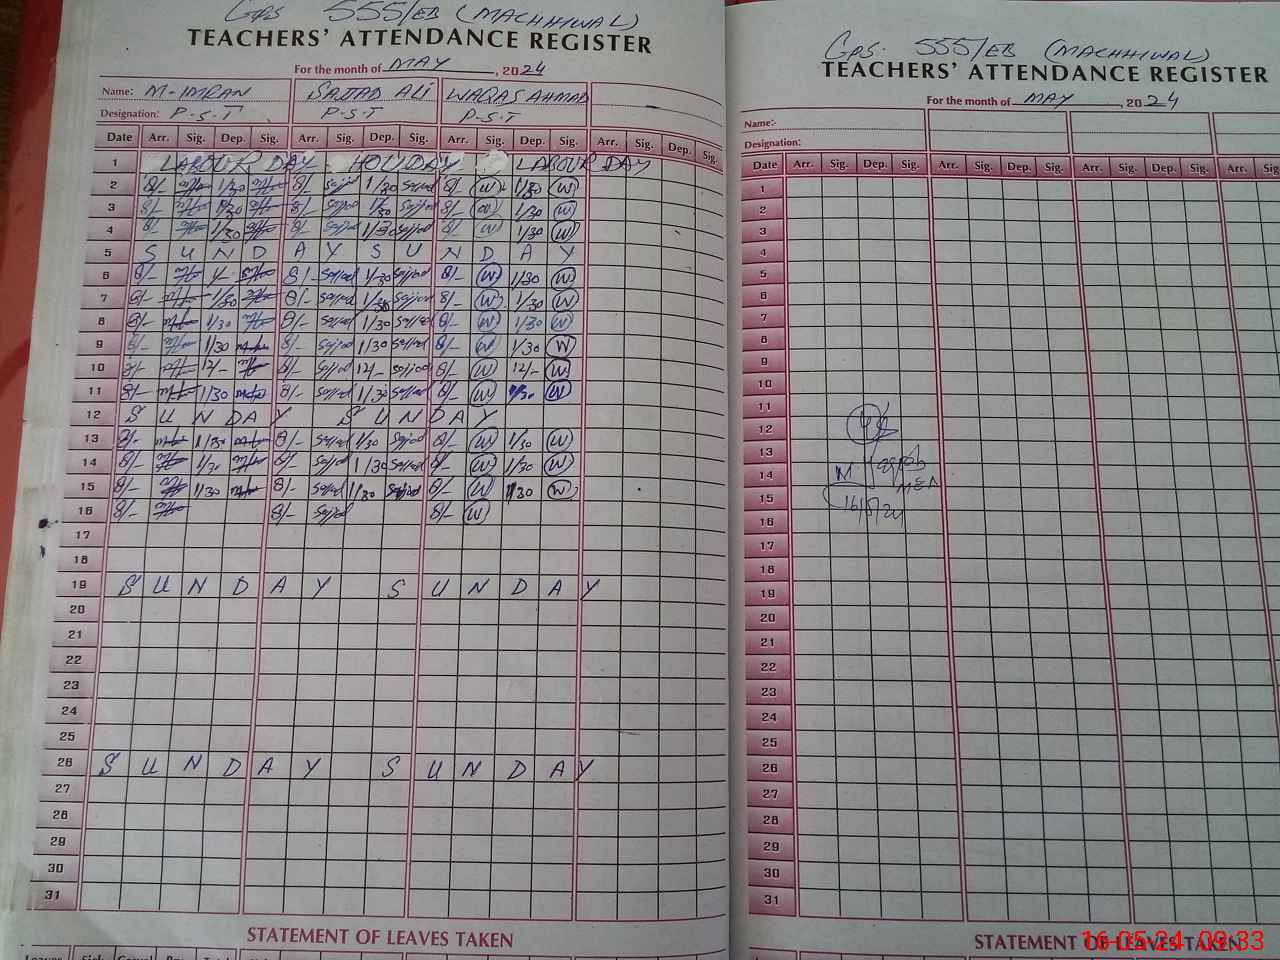 GPS 555/EB (MACHHIWAL)
TEACHERS' ATTENDANCE REGISTER
For the month of MAY, 2024
Name: M-IMRAN SAJJAD ALI WAQAS AHMAD
Designation: P.S.T P.S.T P.S.T
Date Arr. Sig. Dep. Sig. Arr. Sig. Dep. Sig. Arr. Sig. Dep. Sig. Arr. Sig. Dep. Sig.
1 LABOUR DAY HOLIDAY LABOUR DAY
2 8/- 1/30 8/- Sajjad 1/30 Sajjad 8/- W 1/30 W
3 8/- 1/30 8/- Sajjad 1/30 Sajjad 8/- W 1/30 W
4 8/- 1/30 8/- Sajjad 1/30 Sajjad 8/- W 1/30 W
5 S U N D A Y S U N D A Y
6 8/- 8/- Sajjad 1/30 Sajjad 8/- W 1/30 W
7 8/- 1/30 8/- Sajjad 1/30 Sajjad 8/- W 1/30 W
8 8/- 1/30 8/- Sajjad 1/30 Sajjad 8/- W 1/30 W
9 8/- 1/30 8/- Sajjad 1/30 Sajjad 8/- W 1/30 W
10 8/- 12/- 8/- Sajjad 12/- Sajjad 8/- W 12/- W
11 8/- 1/30 8/- Sajjad 1/30 Sajjad 8/- W 1/30 W
12 S U N D A Y S U N D A Y
13 8/- 1/30 8/- Sajjad 1/30 Sajjad 8/- W 1/30 W
14 8/- 1/30 8/- Sajjad 1/30 Sajjad 8/- W 1/30 W
15 8/- 1/30 8/- Sajjad 1/30 Sajjad 8/- W 1/30 W
16 8/- 8/- Sajjad 8/- W
17
18
19 S U N D A Y S U N D A Y
20
21
22
23
24
25
26 S U N D A Y S U N D A Y
27
28
29
30
31
STATEMENT OF LEAVES TAKEN
GPS. 555/EB (MACHHIWAL)
TEACHERS' ATTENDANCE REGISTER
For the month of MAY, 2024
Name:-
Designation:
Date Arr. Sig. Dep. Sig. Arr. Sig. Dep. Sig. Arr. Sig. Dep. Sig. Arr.
1
2
3
4
5
6
7
8
9
10
11
12
13
14 M
15 MEA
16 16/5/24
17
18
19
20
21
22
23
24
25
26
27
28
29
30
31
STATEMENT OF LEAVES TAKEN
16-05-24 09:33